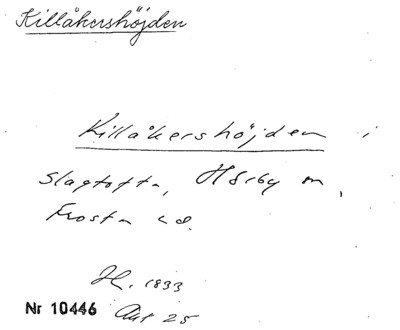 Killåkershöjden
Killåkershöjden i
Slagtofta, Hörby sn,
Frosta hd.
H. 1833
Nr 10446 Akt 25